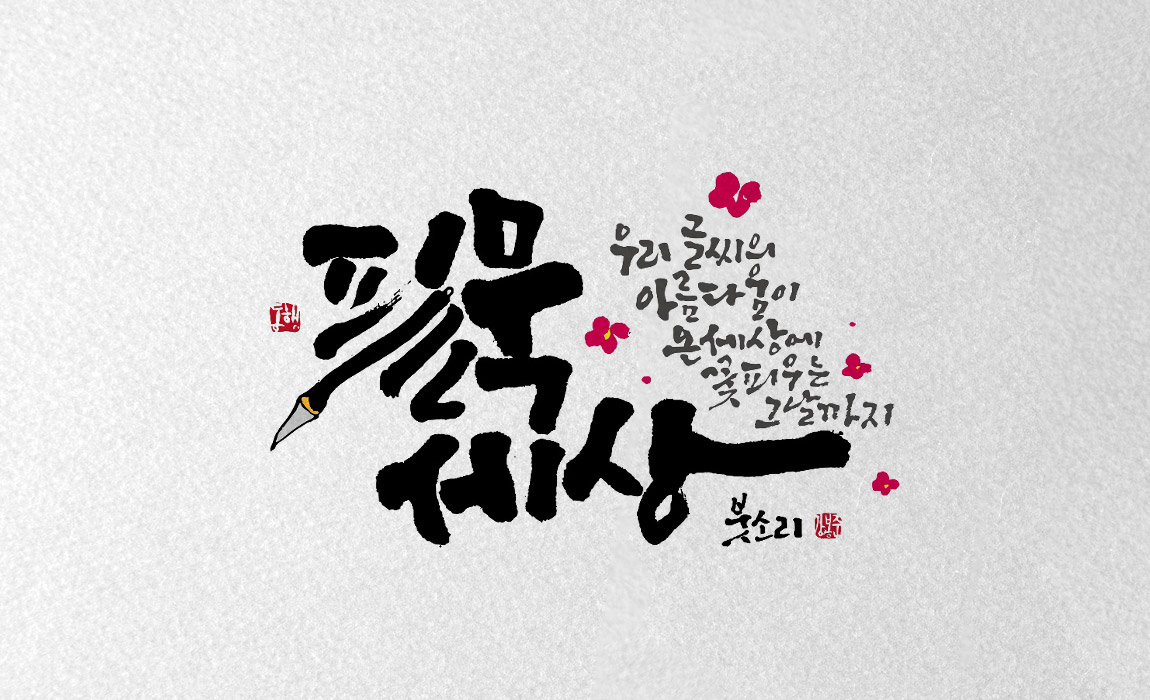 필묵
세상
우리 글씨의
아름다움이
온세상에
꽃피우는
그날까지
붓소리
동행